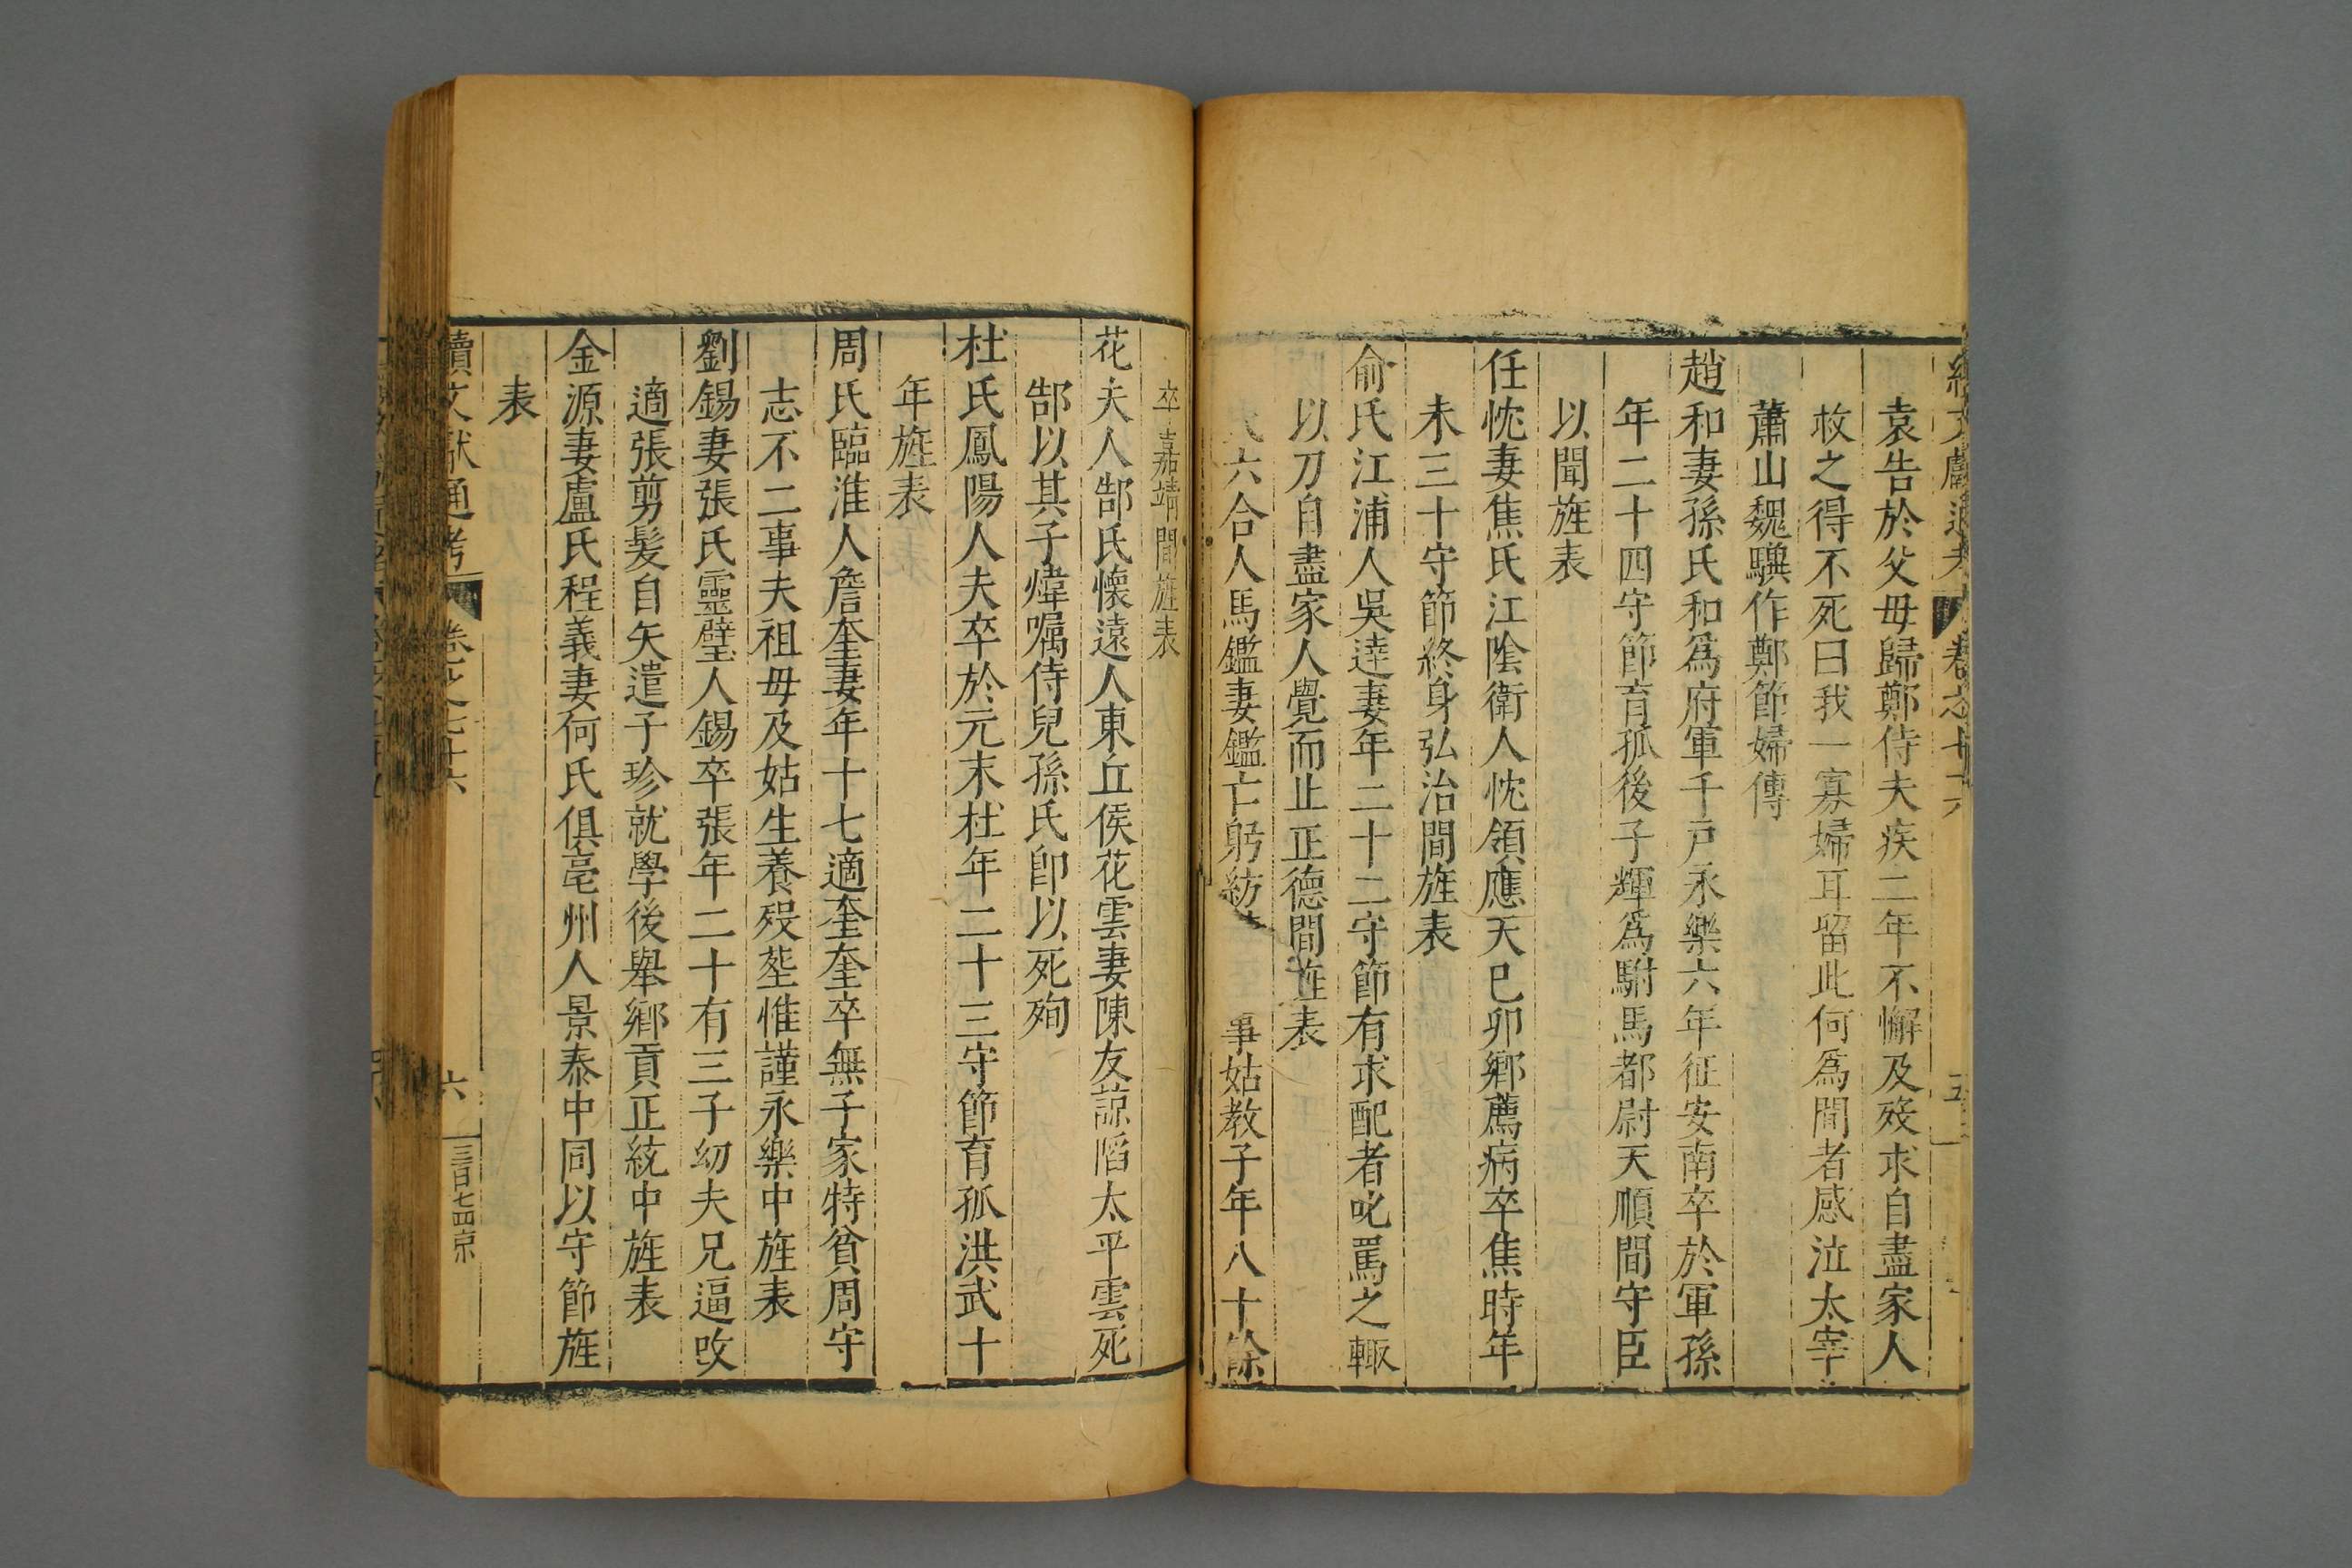 續文獻通考 卷之七十六 五
袁告於父母歸鄭侍夫疾二年不懈及歿求自盡家人
救之得不死曰我一寡婦耳留此何爲聞者感泣太宰
蕭山魏驥作鄭節婦傳
趙和妻孫氏和爲府軍千戸永樂六年征安南卒於軍孫
年二十四守節育孤後子輝爲駙馬都尉天順間守臣
以聞旌表
任忱妻焦氏江隂衛人忱領應天已卯鄉薦病卒焦時年
未三十守節終身弘治間旌表
俞氏江浦人吳逵妻年二十二守節有求配者叱罵之輙
以刀自盡家人覺而止正德間旌表
氏六合人馬鑑妻鑑亡躬紡 事姑教子年八十餘
卒嘉靖間旌表
花夫人郜氏懷遠人東丘侯花雲妻陳友諒䧟太平雲死
郜以其子煒嘱侍兒孫氏卽以死殉
杜氏鳳陽人夫卒於元末杜年二十三守節育孤洪武十
年旌表
周氏臨淮人詹奎妻年十七適奎奎卒無子家特貧周守
志不二事夫祖母及姑生養殁塟惟謹永樂中旌表
劉錫妻張氏靈璧人錫卒張年二十有三子幼夫兄逼改
適張剪髮自矢遣子珍就學後舉鄉貢正統中旌表
金源妻盧氏程義妻何氏俱亳州人景泰中同以守節旌
表
續文獻通考 卷之七十六 六 三百七四京